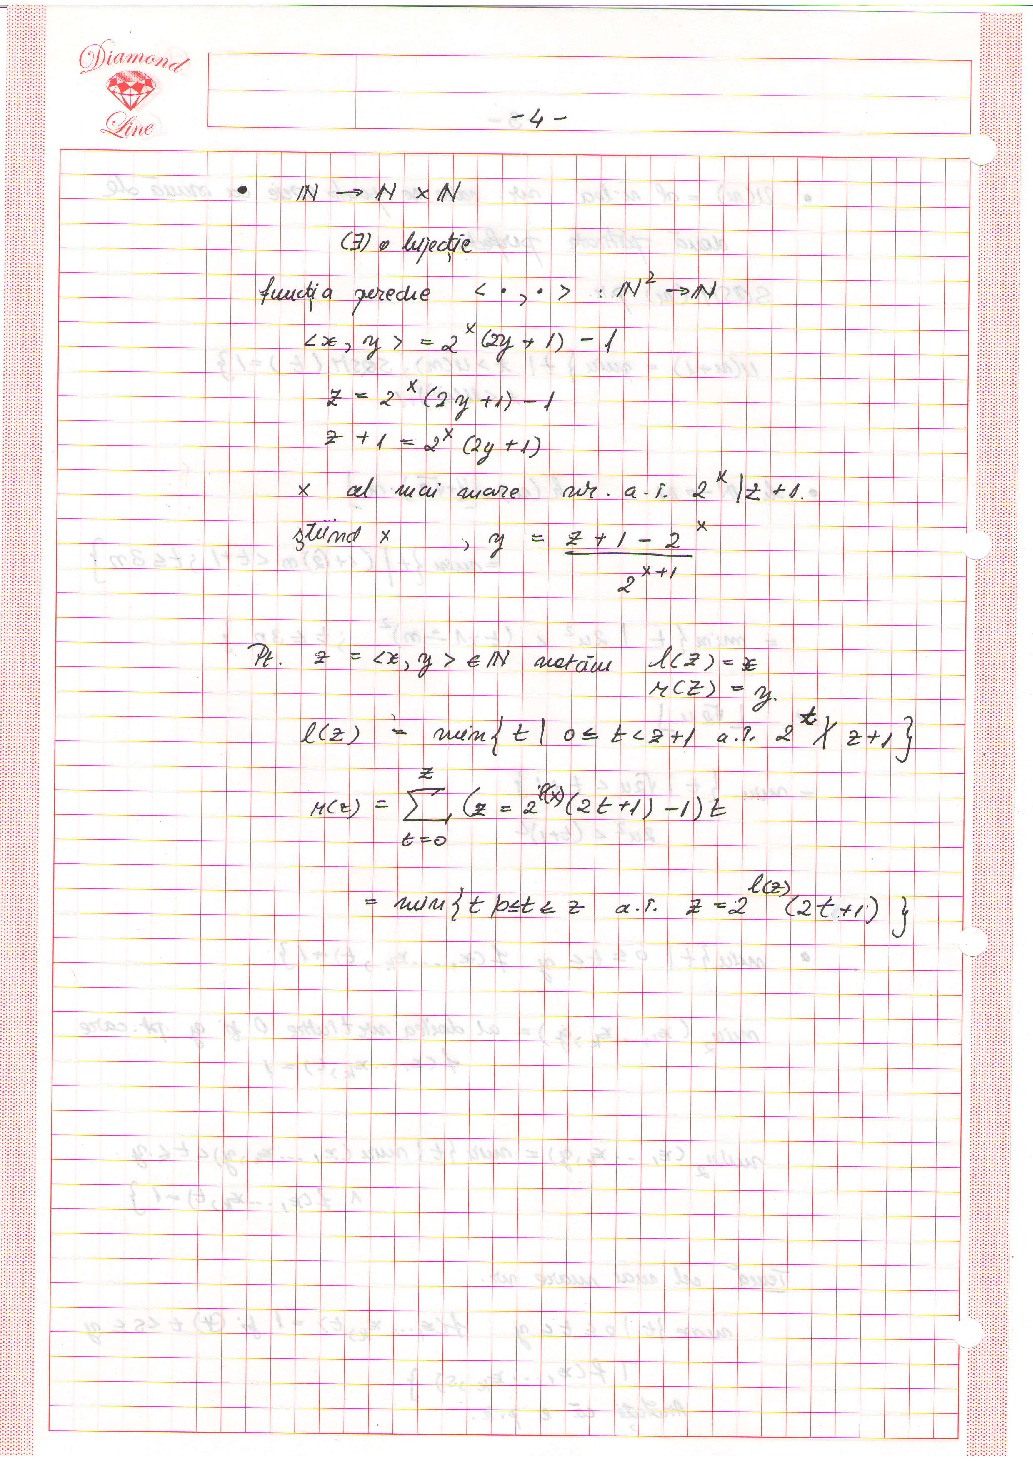 Diamond
Line
- 4 -
• ℕ → ℕ × ℕ
(∃) o bijecție
funcția pereche < · , · > : ℕ² → ℕ
<x, y> = 2^x (2y + 1) - 1
z = 2^x (2y + 1) - 1
z + 1 = 2^x (2y + 1)
x al mai mare nr. a.î. 2^x | z + 1.
știind x , y = (z + 1 - 2^x) / 2^(x+1)
Pt. z = <x, y> ∈ ℕ notăm l(z) = x
r(z) = y.
l(z) = min{ t | 0 ≤ t < z + 1 a.î. 2^t ∤ z + 1 }
r(z) = ∑_{t=0}^{z} (z = 2^l(x) (2t + 1) - 1) t
= min{ t | 0 ≤ t ≤ z a.î. z = 2^l(z) (2t + 1) }